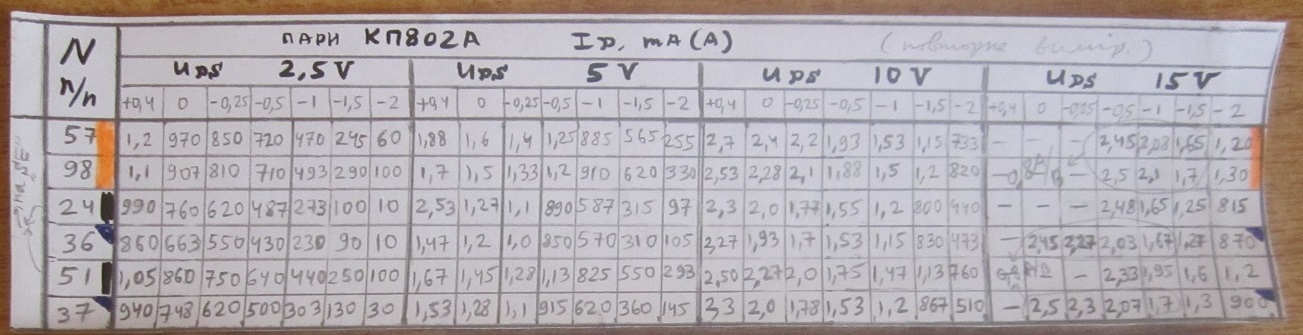 ПАРИ КП802А ID, mA (A) (повторне вимір.)
N п/п UDS 2,5 V UDS 5 V UDS 10 V UDS 15 V
+0,4 0 -0,25 -0,5 -1 -1,5 -2 +0,4 0 -0,25 -0,5 -1 -1,5 -2 +0,4 0 -0,25 -0,5 -1 -1,5 -2 +0,4 0 -0,25 -0,5 -1 -1,5 -2
57 1,2 970 850 720 470 245 60 1,88 1,6 1,4 1,25 885 565 255 2,7 2,4 2,2 1,93 1,53 1,15 733 - - - 2,45 2,08 1,65 1,20
98 1,1 907 810 710 493 290 100 1,7 1,5 1,33 1,2 910 620 330 2,53 2,28 2,1 1,88 1,5 1,2 820 - - 2,5 2,1 1,7 1,30
24 990 760 620 487 273 100 10 2,53 1,27 1,1 890 587 315 97 2,3 2,0 1,77 1,55 1,2 800 440 - - - 2,48 1,65 1,25 815
36 860 663 550 430 230 90 10 1,47 1,2 1,0 850 570 310 105 2,27 1,93 1,7 1,53 1,15 830 473 - 2,45 2,27 2,03 1,67 1,27 870
51 1,05 860 750 640 440 250 100 1,67 1,45 1,28 1,13 825 550 293 2,50 2,27 2,0 1,75 1,47 1,13 760 - 2,33 1,95 1,6 1,2
37 940 748 620 500 303 130 30 1,53 1,28 1,1 915 620 360 145 2,3 2,0 1,78 1,53 1,2 867 510 - 2,5 2,3 2,07 1,7 1,3 900